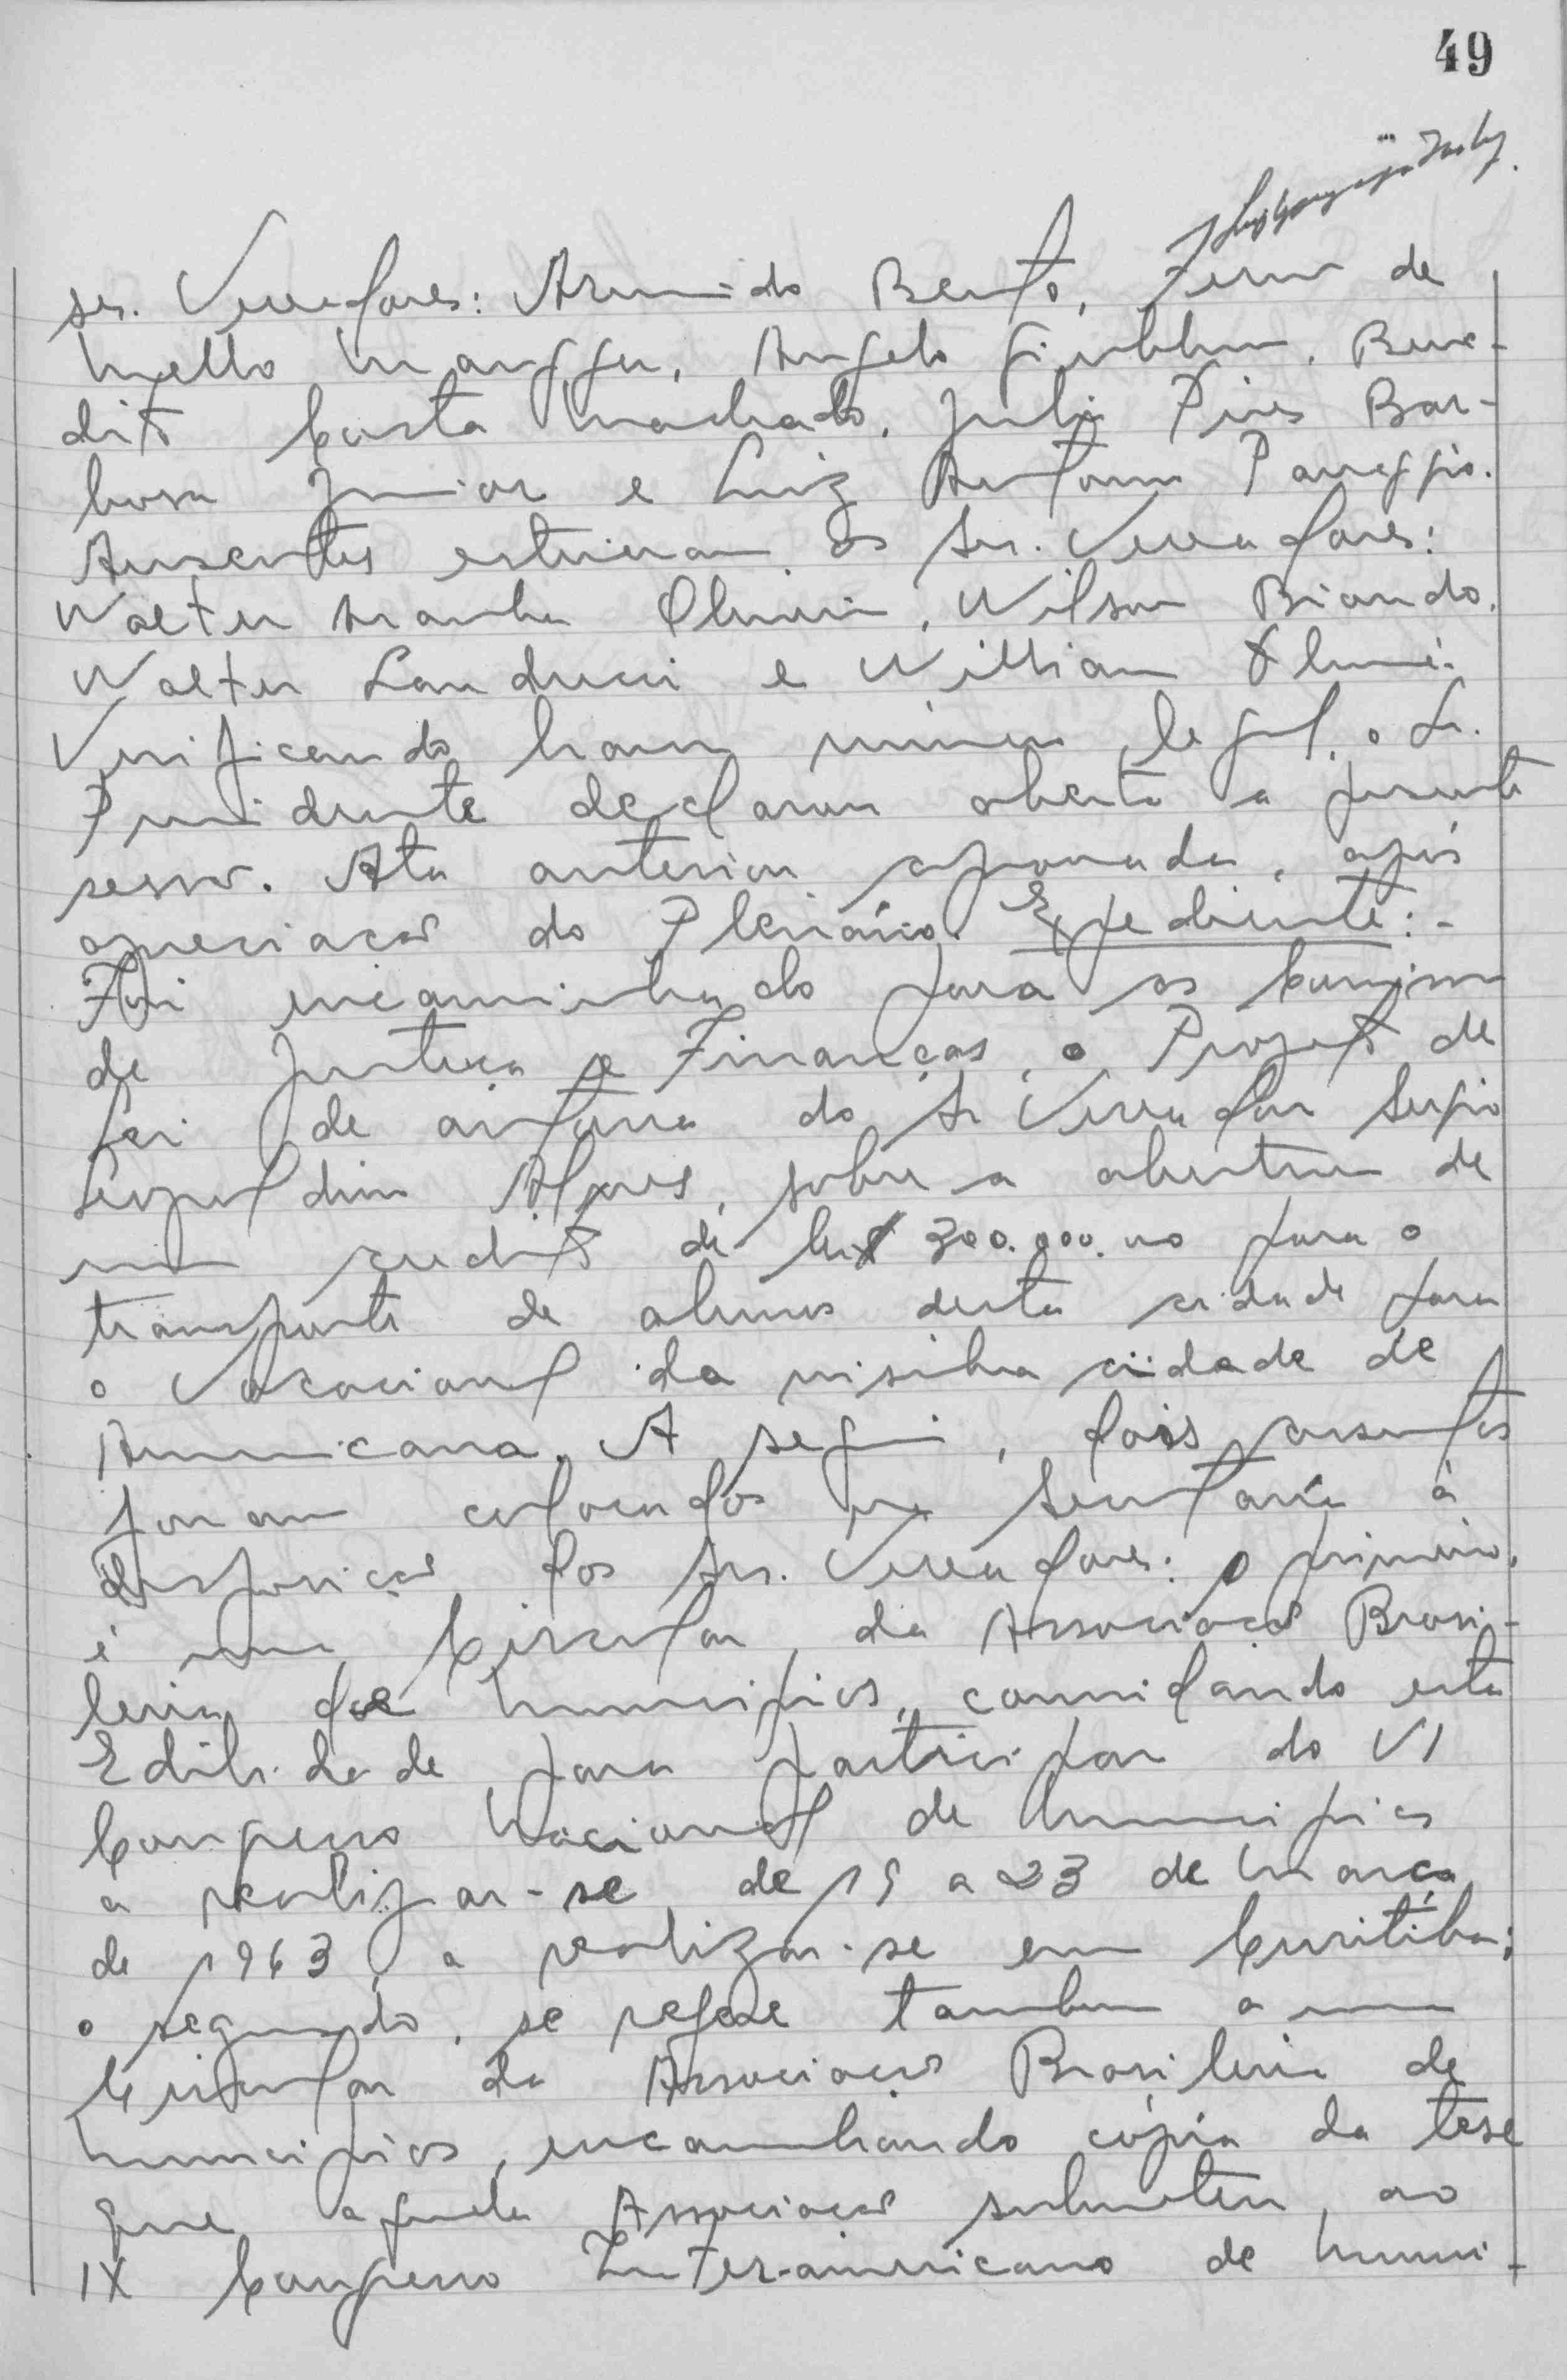 49
srs. Vereadores: Armindo Bento, de
Mello Angelo Bene-
dito Costa Machado, Julio Pires Bar-
bosa Junior e Luiz Antonio
Ausentes estiveram os Srs. Vereadores:
Walter Aranha Oliveira, Wilson Biondo,
Walter Landucci e Willian
Verificando haver número legal, o Sr.
Presidente declarou aberta a presente
sessão. Ata anterior aprovada, após
apreciação do Plenário. Expediente:-
Foi encaminhado para as Comissões
de Justiça e Finanças, o Projeto de
Lei de autoria do Sr Vereador Sergio
Leopoldino Alves, sobre a abertura de
um credito de Cr$ 300.000.00 para o
transporte de alunos desta cidade para
o Vocacional da visinha cidade de
Americana. A seguir, dois assuntos
foram colocados na Secretaria à
disposição dos Srs. Vereadores: o primeiro,
é uma Circular da Associação Brasi-
leira de Municipios, convidando esta
Edilidade para participar do VI
Congresso Nacional de Municipios
a realizar-se de 19 a 23 de Março
de 1963, a realizar-se em Curitiba;
o segundo, se refere tambem a uma
Circular da Associação Brasileira de
Municipios, encaminhando cópia da tese
que aquela Associação submeteu, ao
IX Congresso Inter-americano de Muni-